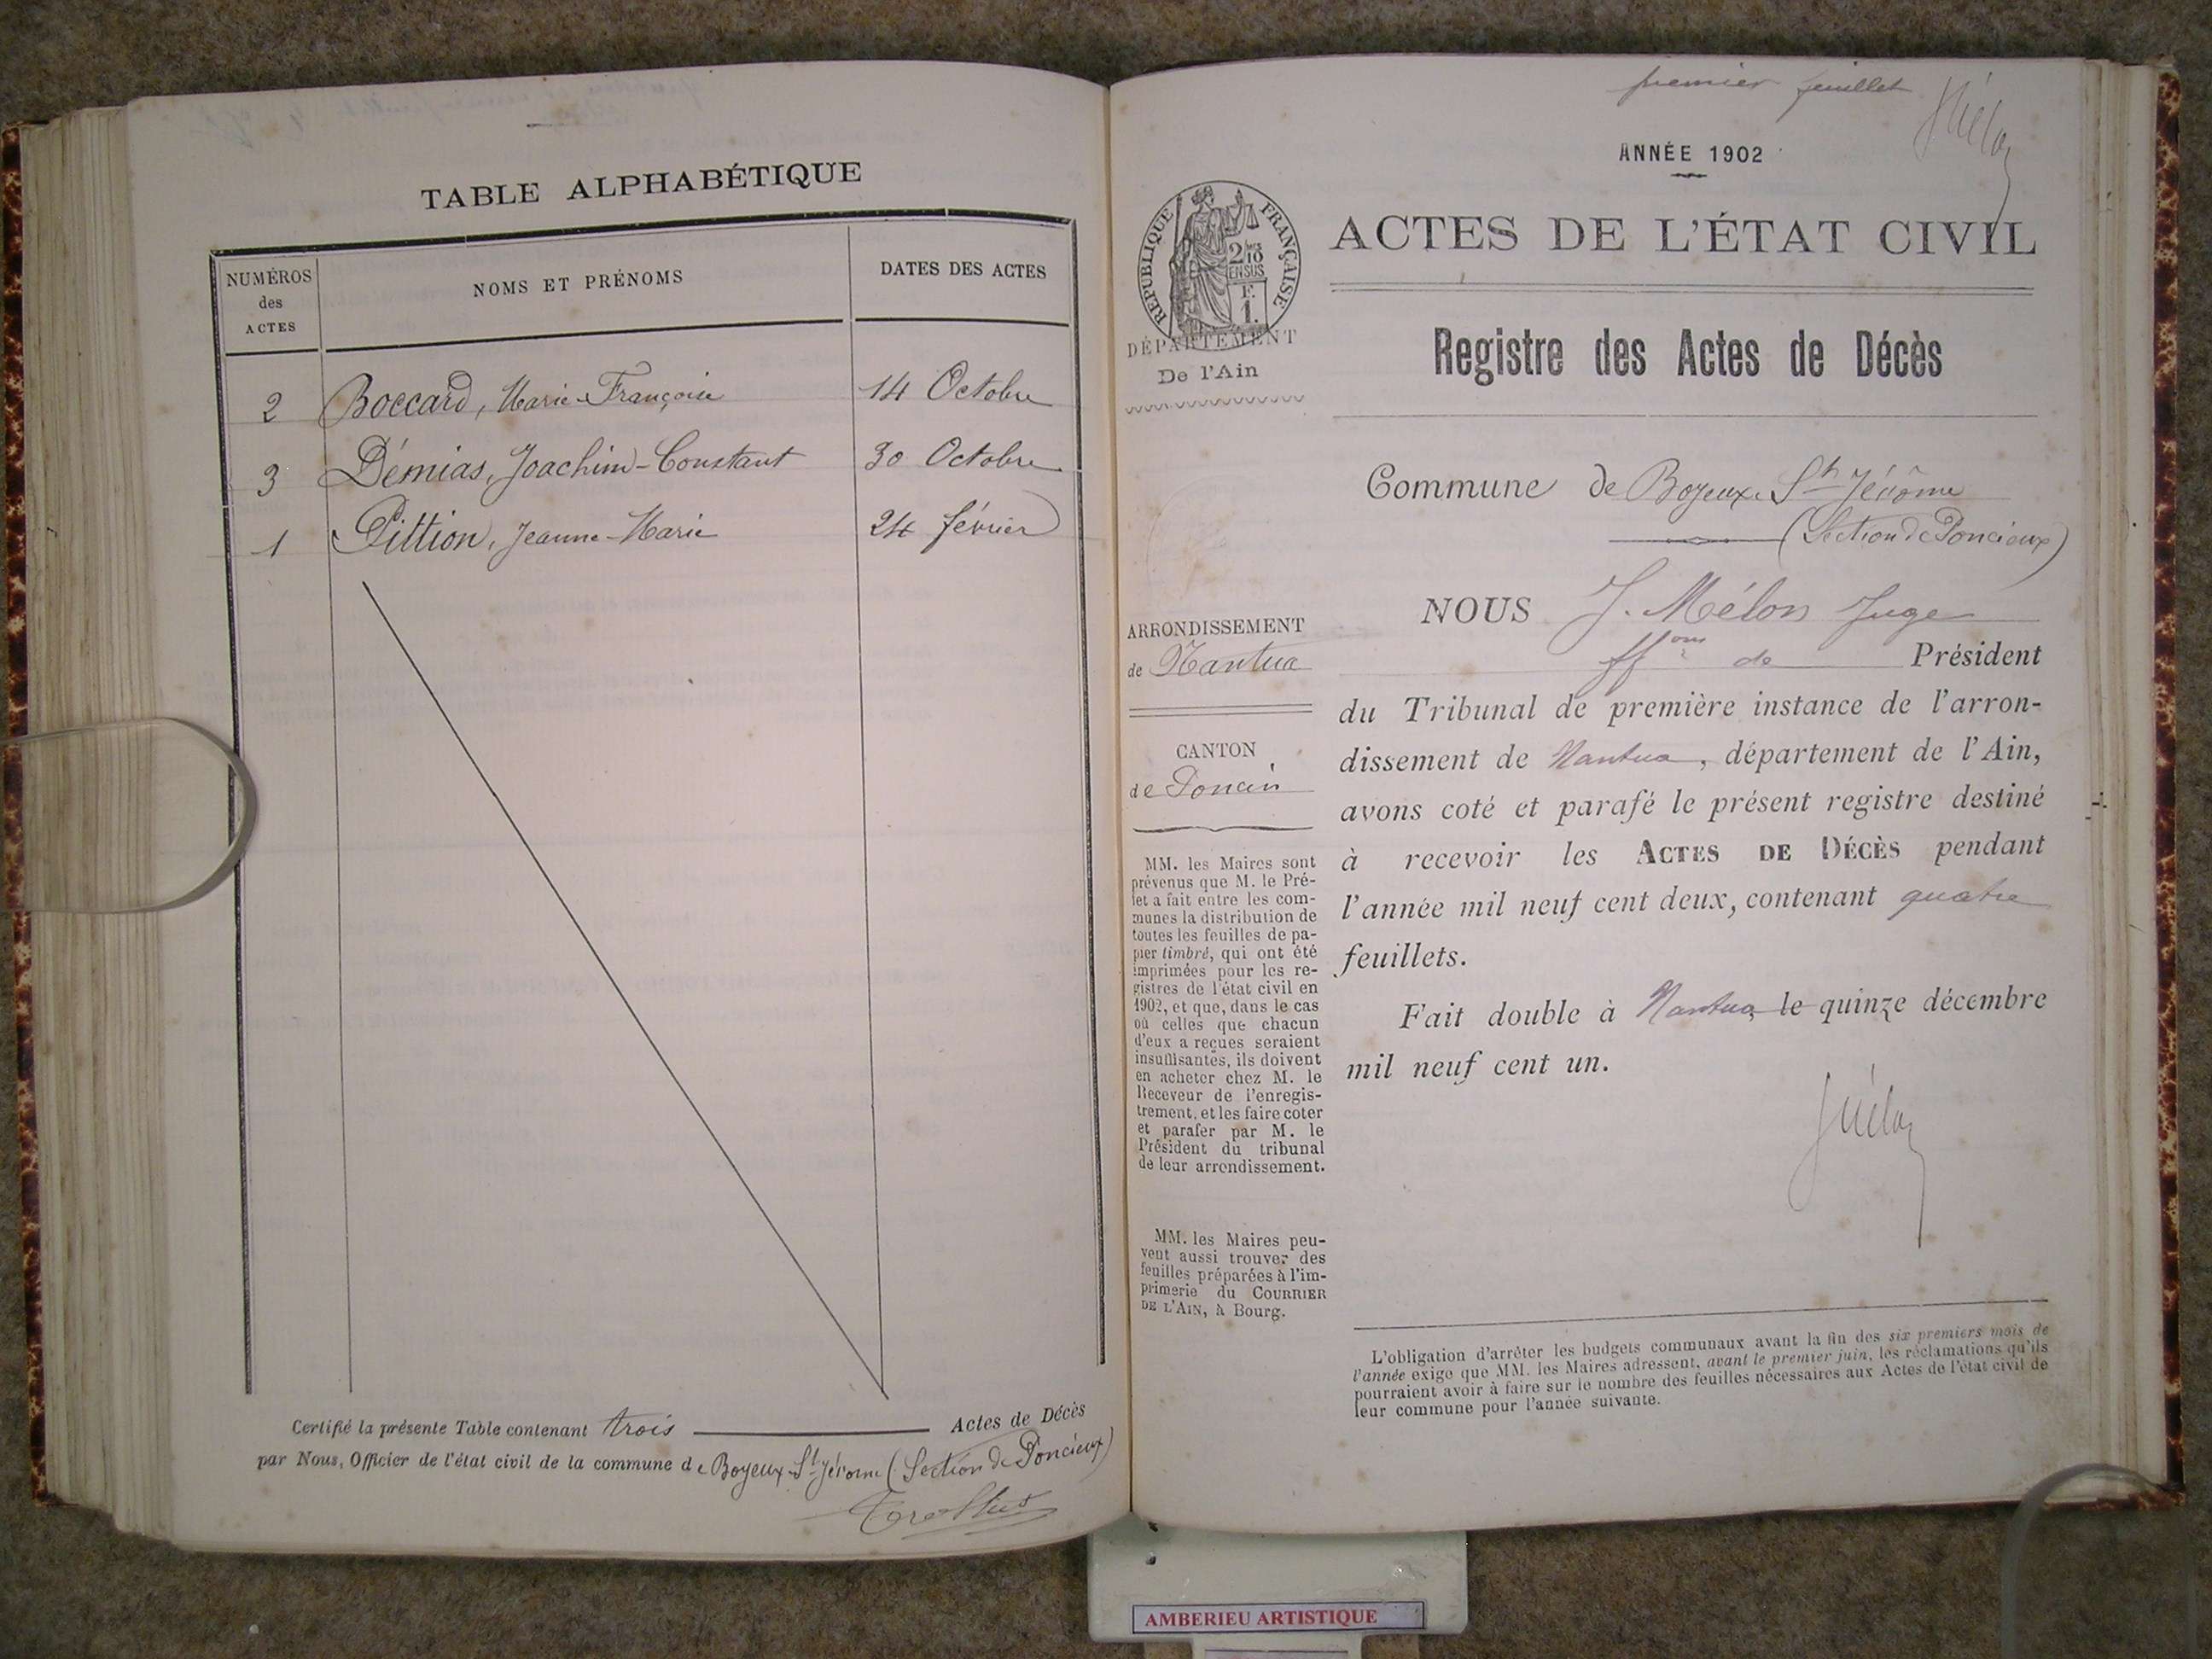 TABLE ALPHABÉTIQUE
NUMÉROS des ACTES
NOMS ET PRÉNOMS
DATES DES ACTES
2 Boccard, Marie-Françoise 14 Octobre
3 Démias, Joachim-Constant 30 Octobre
1 Pittion, Jeanne-Marie 24 février
Certifié la présente Table contenant trois Actes de Décès
par Nous, Officier de l'état civil de la commune de Boyeux-St-Jérôme (Section de Poncieux)
premier feuillet
ANNÉE 1902
RÉPUBLIQUE FRANÇAISE
2/10 EN SUS
F. 1.
DÉPARTEMENT
De l'Ain
ACTES DE L'ÉTAT CIVIL
Registre des Actes de Décès
Commune de Boyeux-St-Jérôme
(Section de Poncieux)
ARRONDISSEMENT
de Nantua
CANTON
de Poncin
MM. les Maires sont
prévenus que M. le Pré-
fet a fait entre les com-
munes la distribution de
toutes les feuilles de pa-
pier timbré, qui ont été
imprimées pour les re-
gistres de l'état civil en
1902, et que, dans le cas
où celles que chacun
d'eux a reçues seraient
insuffisantes, ils doivent
en acheter chez M. le
Receveur de l'enregis-
trement, et les faire coter
et parafer par M. le
Président du tribunal
de leur arrondissement.
MM. les Maires peu-
vent aussi trouver des
feuilles préparées à l'im-
primerie du COURRIER
DE L'AIN, à Bourg.
NOUS J. Mélon Juge
ffons de Président
du Tribunal de première instance de l'arron-
dissement de Nantua, département de l'Ain,
avons coté et parafé le présent registre destiné
à recevoir les ACTES DE DÉCÈS pendant
l'année mil neuf cent deux, contenant quatre
feuillets.
Fait double à Nantua, le quinze décembre
mil neuf cent un.
L'obligation d'arrêter les budgets communaux avant la fin des six premiers mois de
l'année exige que MM. les Maires adressent, avant le premier juin, les réclamations qu'ils
pourraient avoir à faire sur le nombre des feuilles nécessaires aux Actes de l'état civil de
leur commune pour l'année suivante.
AMBERIEU ARTISTIQUE